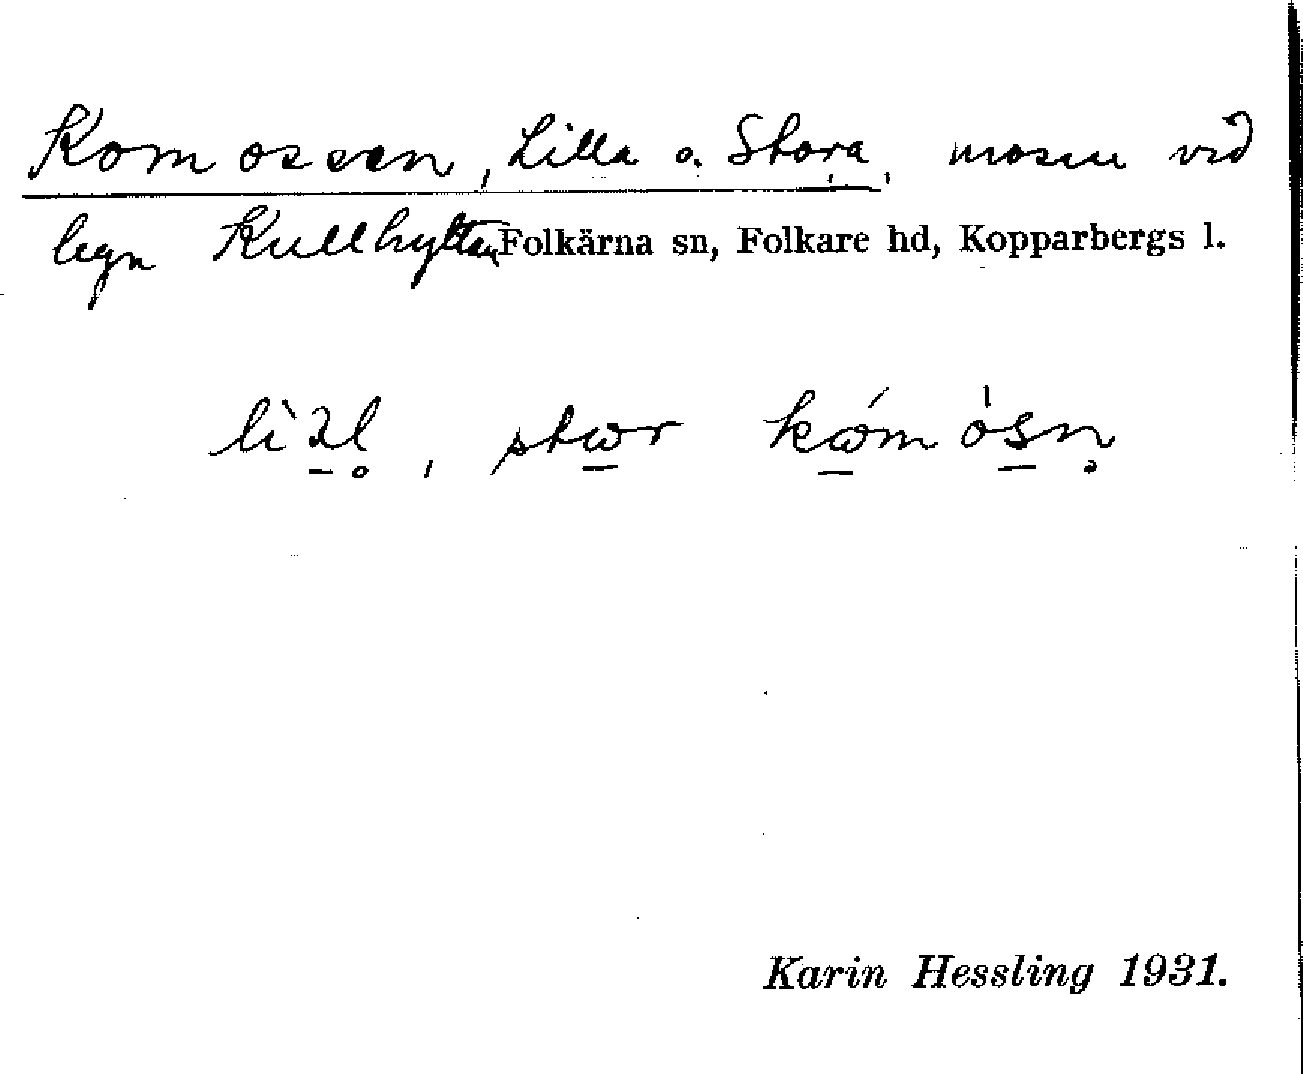 Komossen, Lilla o. Stora, mosse vid
lägn Kullhyttan Folkärna sn, Folkare hd, Kopparbergs l.
Karin Hessling 1931.